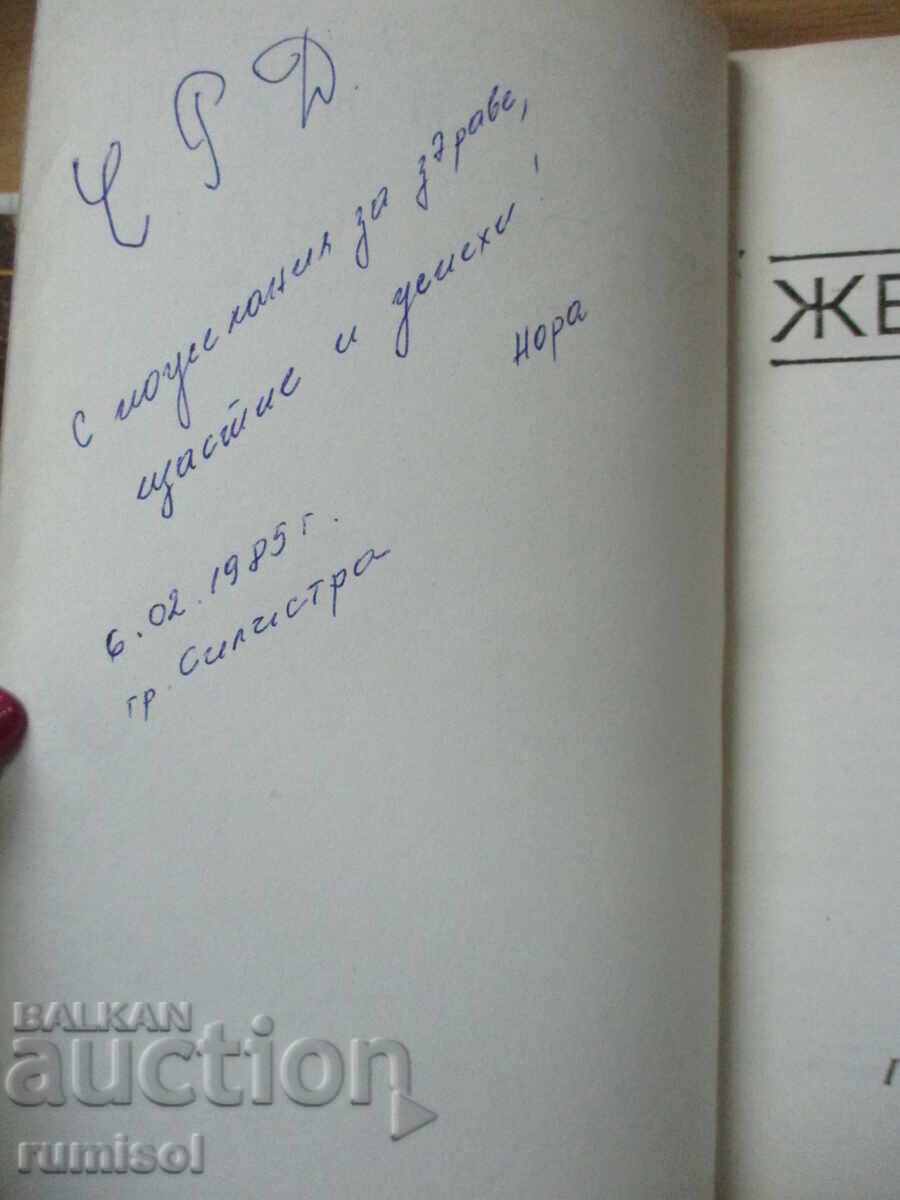 ЧРД.
с пожелания за здраве,
щастие и успехи!
Нора
6.02.1985 г.
гр. Силистра
ЖЕ
BALKAN
auction
rumisol